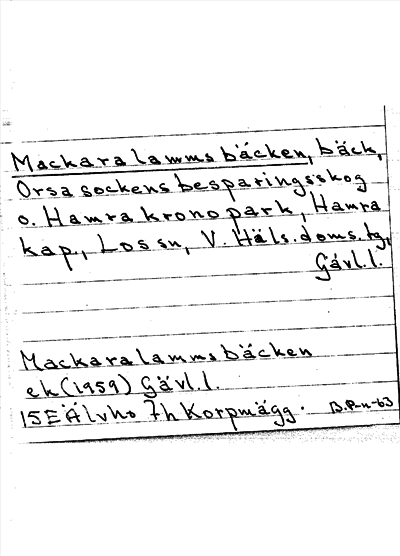 Mackaralammsbäcken, bäck,
Orsa sockens besparingsskog
o. Hamra kronopark, Hamra
kap., Los sn, V. Häls. doms. tg,
Gävl.l.
Mackaralammsbäcken
ek (1959) Gävl.l.
15E Älvho 7h Korpmägg. B.P-n-63